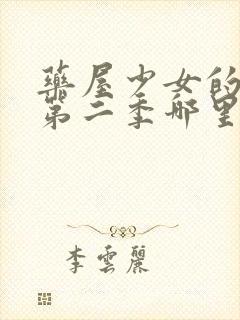 藥屋少女的
第二季哪里
李雲麗